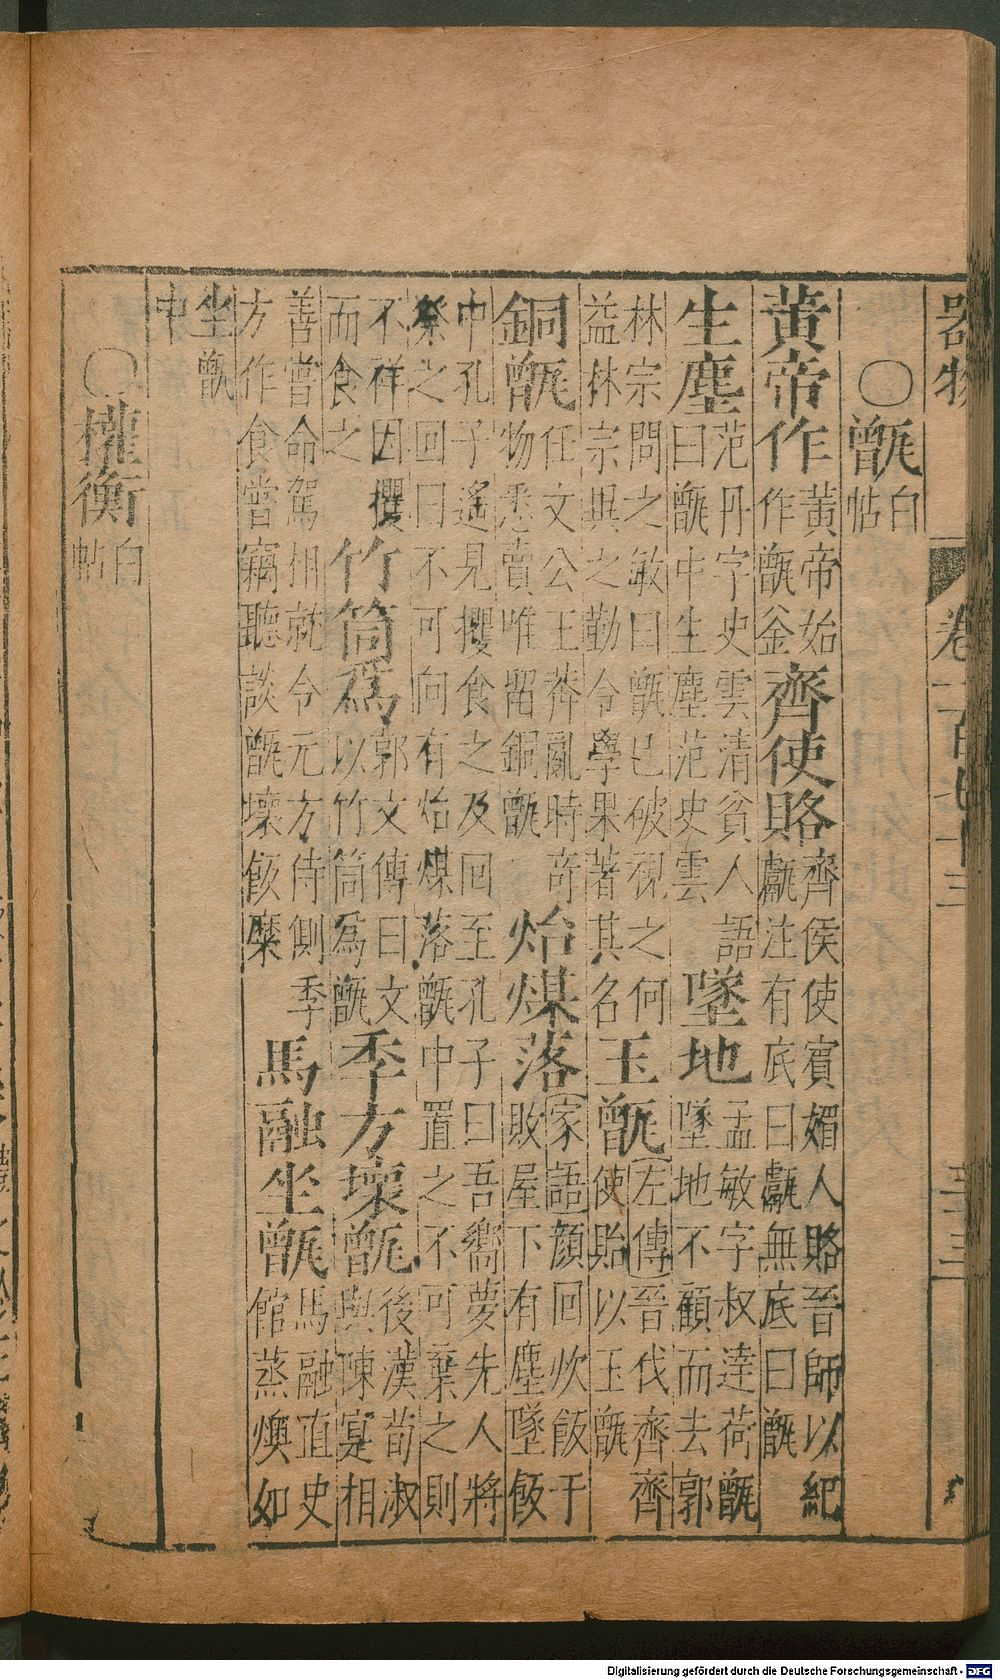 器物 卷 百七十三
○甑 白帖
黄帝作 黃帝始作甑釜 齊使賂 齊侯使賓媚人賂晉師以紀甗注有底曰甗無底曰甑
生塵 范丹字史雲清貧人語曰甑中生塵范史雲 墜地 孟敏字叔達荷甑墜地不顧而去郭
林宗問之敏曰甑已破視之何益林宗異之勤令學果著其名 玉甑 左傳晉伐齊齊使貽以玉甑
銅甑 任文公王莽亂時竒物悉賣唯畱銅甑 炲煤落 家語顔回炊飯于敗屋下有塵墜飯
中孔子遙見攫食之及回至孔子曰吾嚮夢先人將祭之回曰不可向有炲煤落甑中置之不可棄之則
不祥因攫而食之 竹筒爲 郭文傳曰文以竹筒為甑 季方壞甑 後漢荀淑與陳寔相
善嘗命駕相就令元方侍側季方作食嘗竊聽談甑壞飯糜 馬融坐甑 馬融直史館蒸燠如
坐甑中
○權衡 白帖
Digitalisierung gefördert durch die Deutsche Forschungsgemeinschaft - DFG